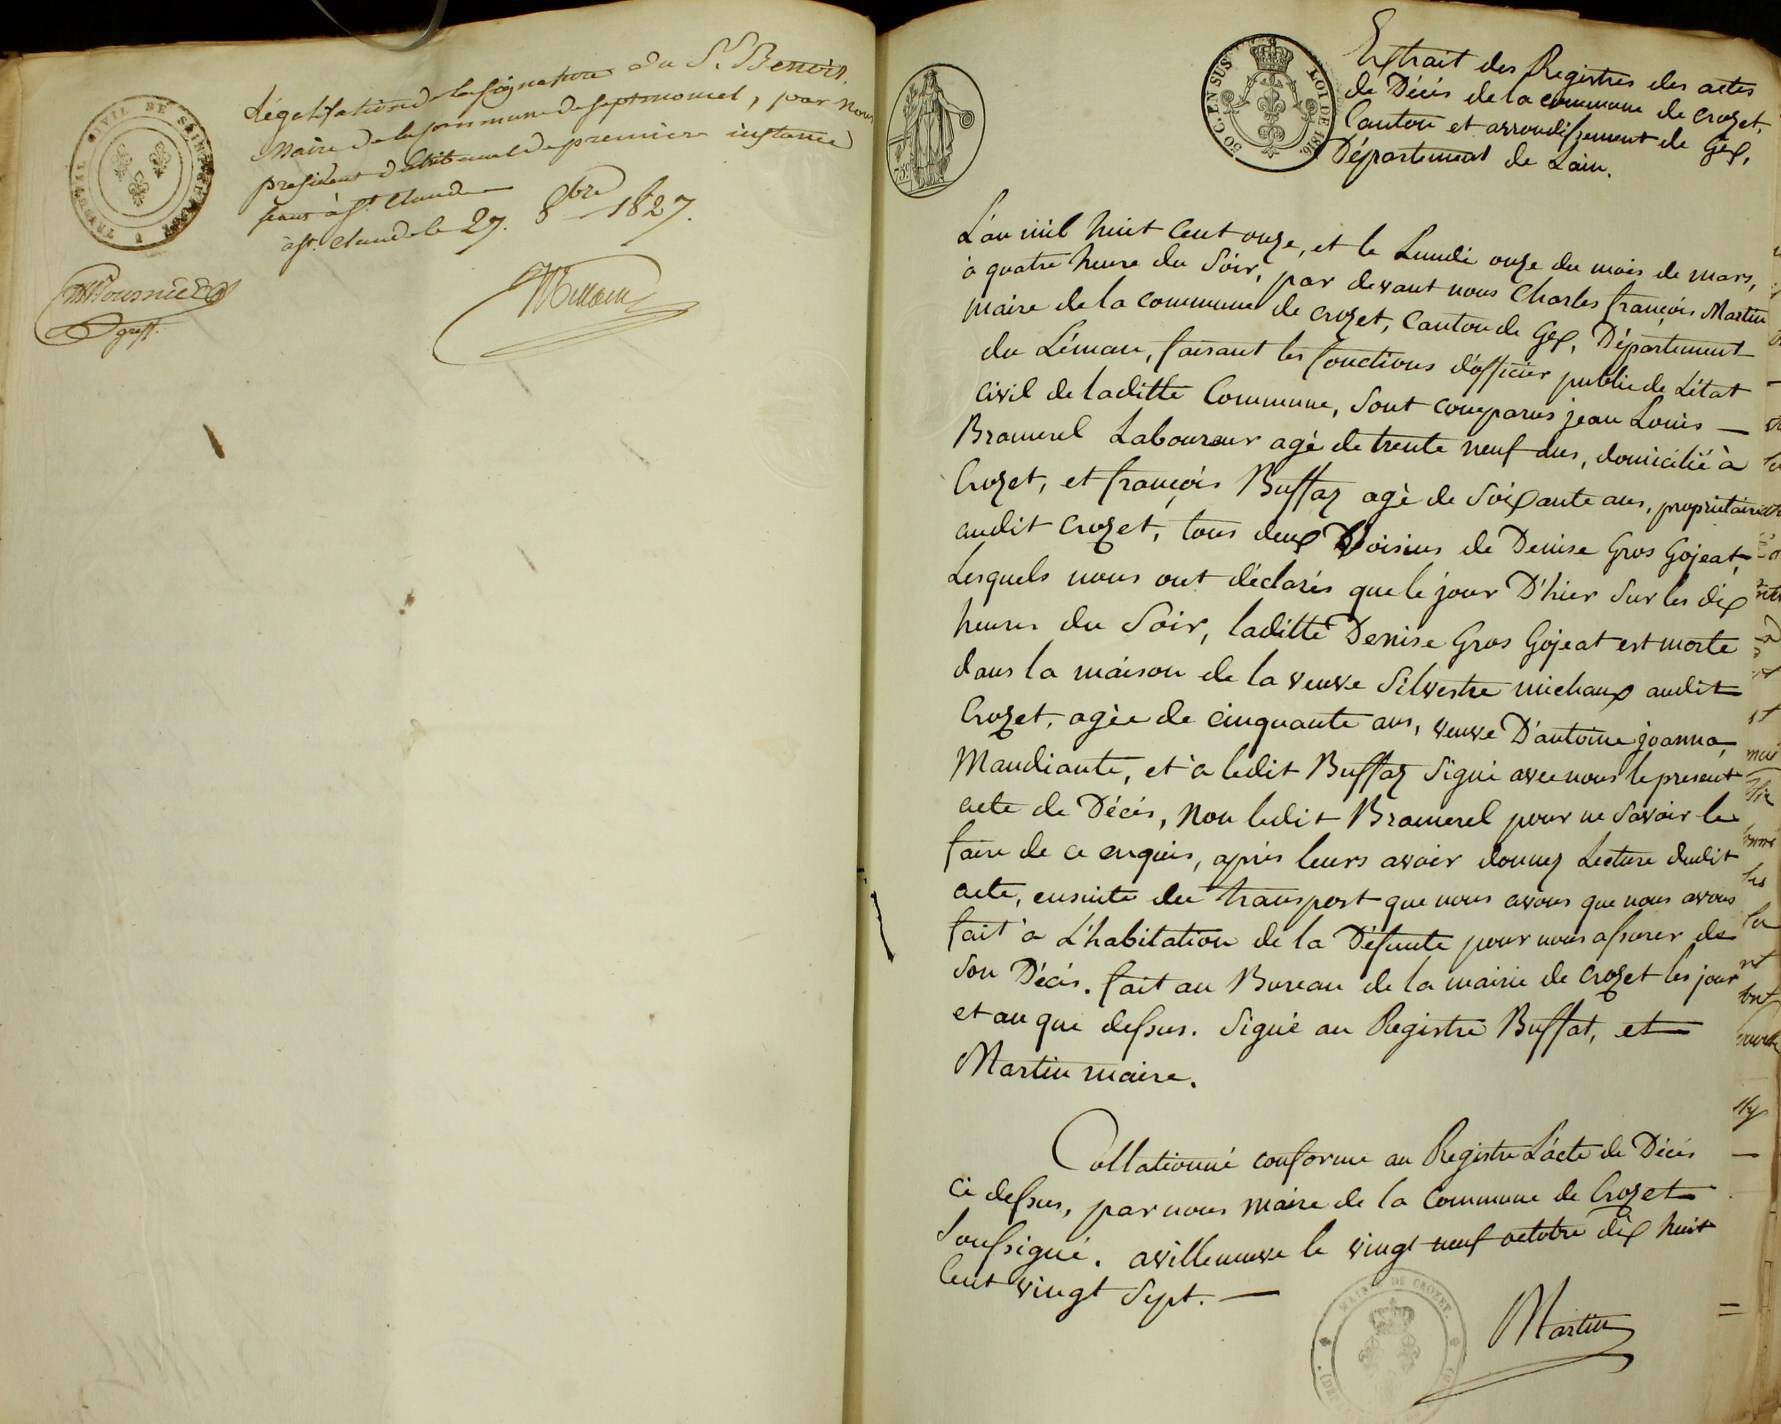 Légalisation de la signature du Sr. Benoit.
Maire de la commune de Septmoncel, par nous
président du tribunal de première instance
séant à St. Claude
à St. Claude le 27. 8bre 1827.
greff.
TRIBUNAL CIVIL DE SAINT CLAUDE
50 C. EN SUS
LOI DE 1816
Extrait des Registres des actes
de Décès de la commune de Crozet,
Canton et arrondissement de Gex,
Département de Lain.
L'an mil huit cent onze, et le Lundi onze du mois de mars,
à quatre heure du Soir, par devant nous Charles françois Martin
maire de la commune de crozet, Canton de Gex, Département
du Léman, faisant les fonctions d'officier public de L'état
civil de laditte Commune, Sont comparus jean Louis —
Bramerel Laboureur agé de trente neuf ans, domicilié à
Crozet, et françois Buffaz agé de Soixante ans, propriétaire
audit crozet, tous deux Voisins de Denise Gros Gojeat,
Lesquels nous ont déclarés que le jour D'hier Sur les dix
heures du Soir, laditte Denise Gros Gojeat est morte
dans la maison de la veuve Silvestre michaux audit
Crozet, agée de cinquante ans, veuve D'antoine joanna,
Mandiante, et à ledit Buffaz Signé avec nous le present
acte de Décès, Non ledit Bramerel pour ne Savoir le
faire de ce enquis, après leurs avoir donnez Lecture dudit
acte, ensuite du transport que nous avons que nous avons
fait à L'habitation de la Défunte pour nous assurer de
Son Décès. fait au Bureau de la mairie de crozet les jour
et an que dessus. Signé au Registre Buffat, et
Martin maire.
Collationné conforme au Registre L'acte de Décès
Ci dessus, par nous Maire de la Commune de Crozet
Soussigné. a villeneuve le vingt neuf octobre dix huit
Cent vingt Sept. —
MAIRIE DE CROZET
Martin